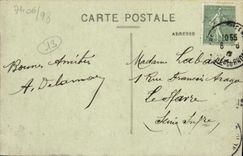 7406/98
CARTE POSTALE
ADRESSE
13
Bonnes Amitiés
A. Delamare
Madame Labaè
1 Rue François Arago
Le Havre
Seine Infre